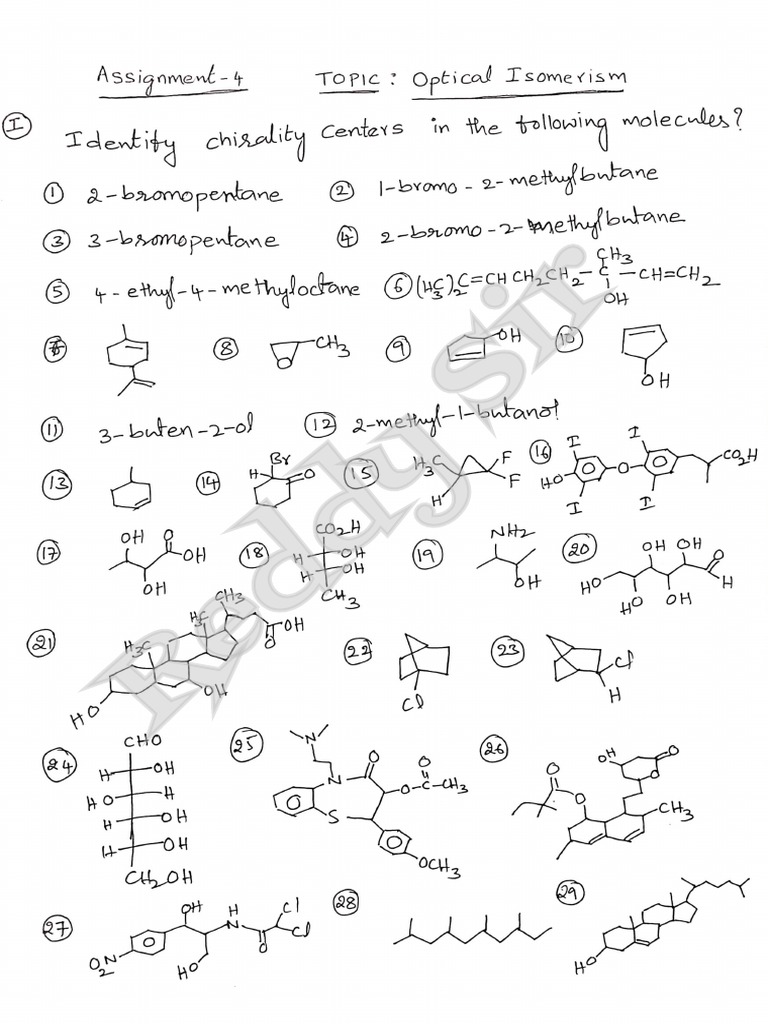 Assignment-4 TOPIC: Optical Isomerism
I Identify chirality centers in the following molecules?
1 2-bromopentane 2 1-bromo-2-methylbutane
3 3-bromopentane 4 2-bromo-2-methylbutane
5 4-ethyl-4-methyloctane 6 (H3C)2C=CHCH2CH2-C-CH=CH2
CH3
OH
7 8 CH3 9 OH 10 OH
11 3-buten-2-ol 12 2-methyl-1-butanol
13 14 Br H O 15 H3C H F F 16 I I HO O I I CO2H
17 OH O OH OH 18 CO2H H OH H OH CH3 19 NH2 OH 20 OH OH O HO HO OH H
21 CH3 H3C H3C OH O HO OH 22 Cl 23 Cl H
24 CHO
H OH
HO H
H OH
H OH
CH2OH
25 N N O O-C-CH3 O S OCH3
26 O O OH O O CH3
27 OH H N Cl Cl O HO O2N 28 29 HO
Reddy Sir